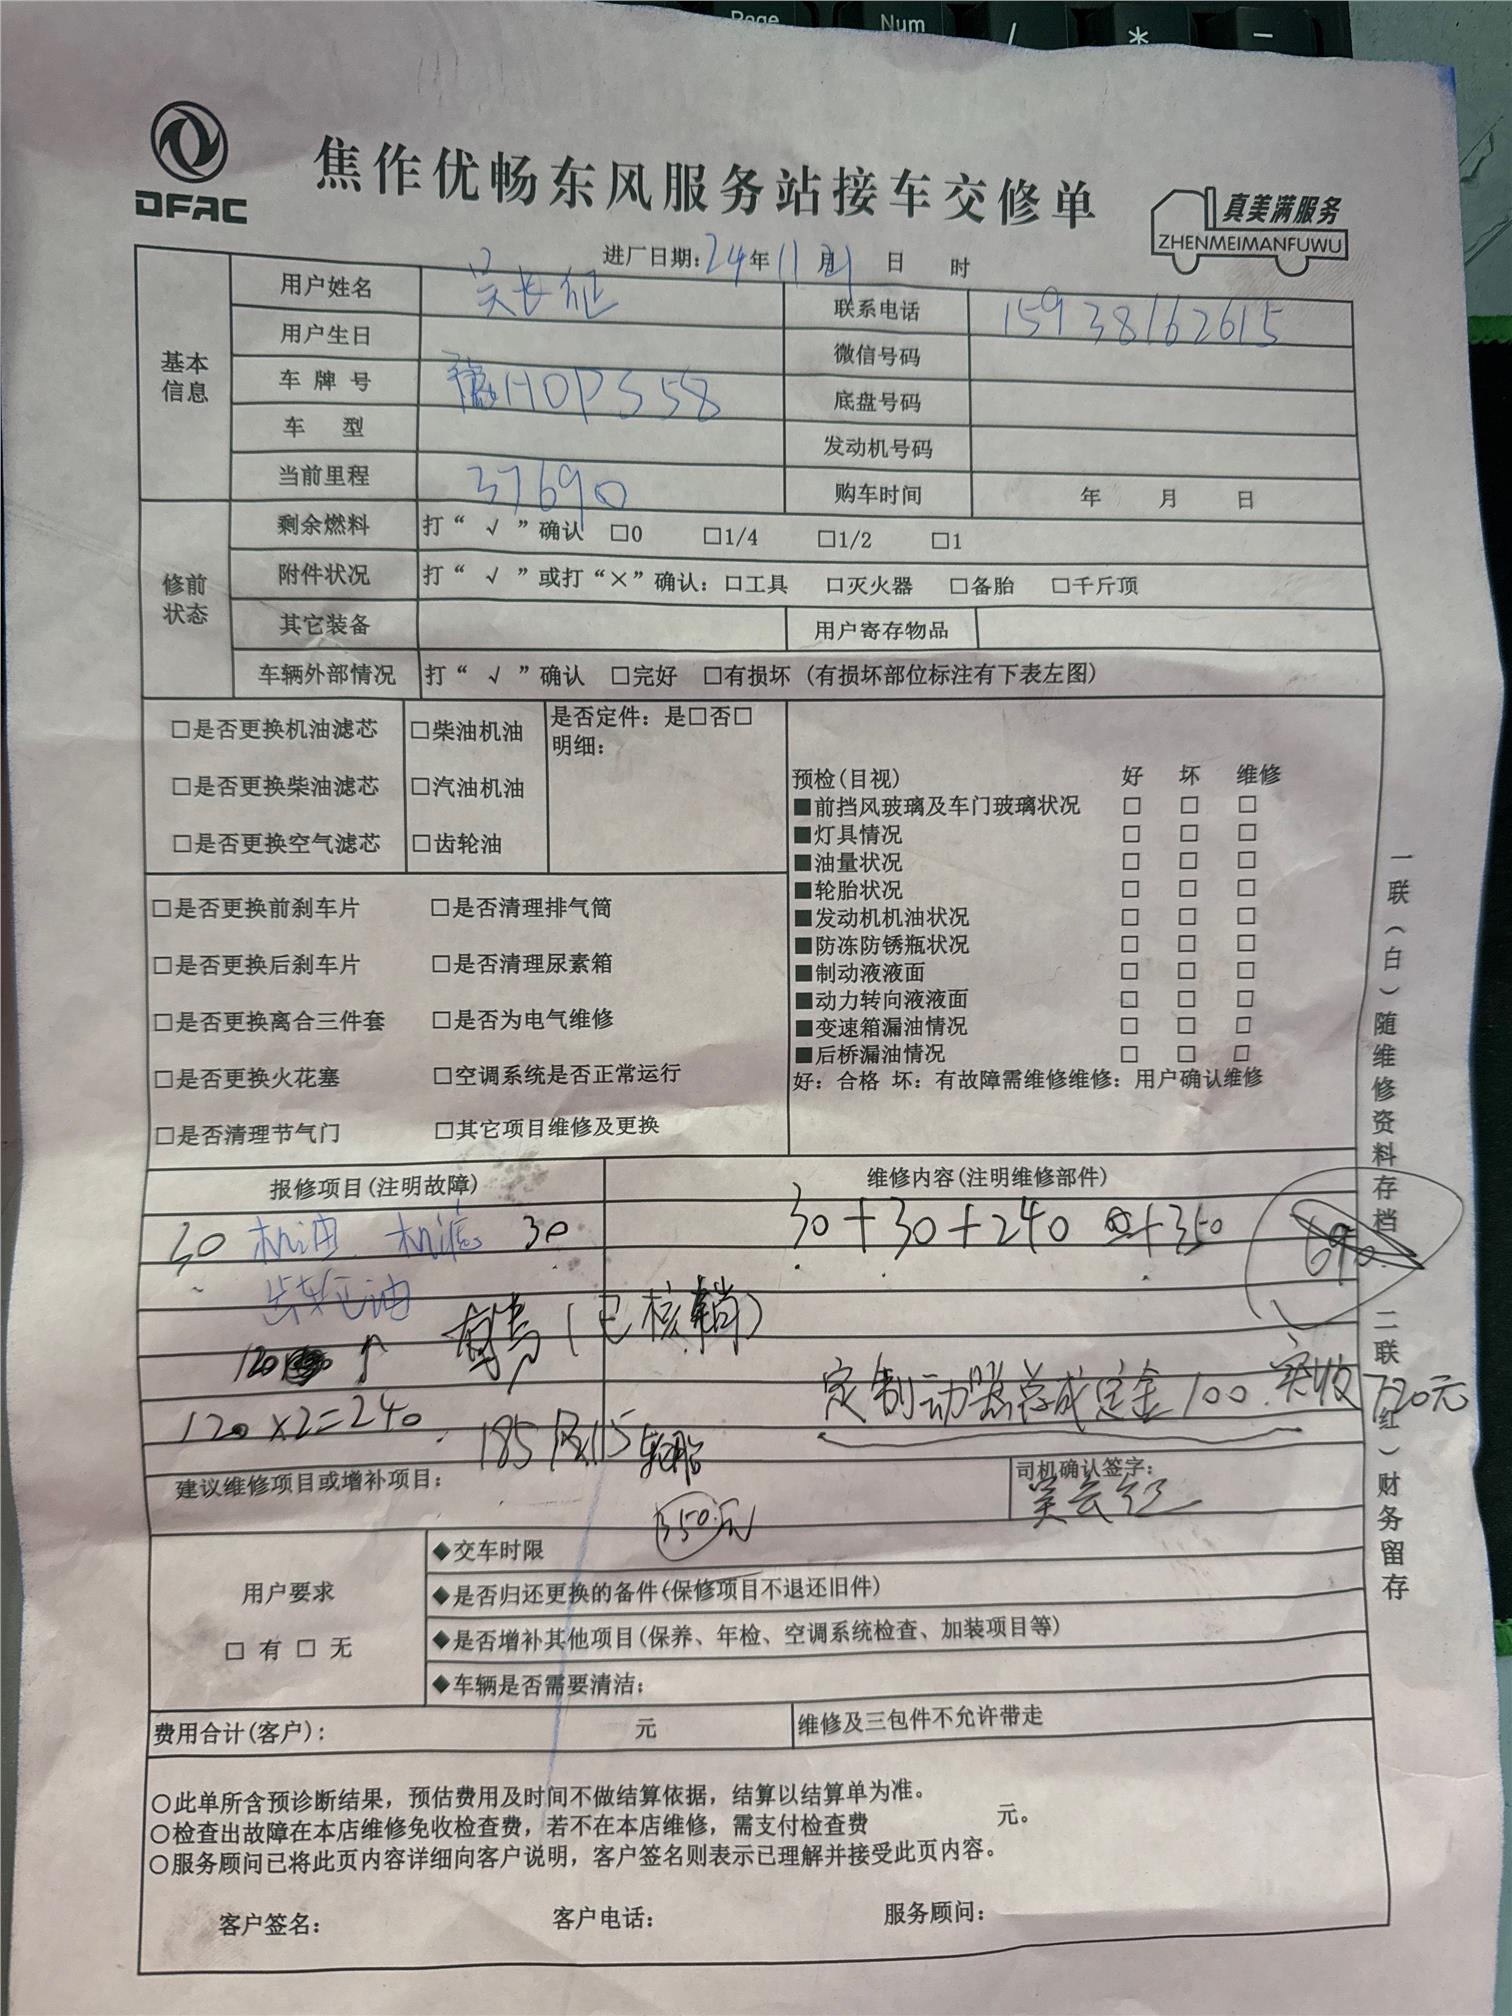 Page
Num
/
*
-
DFAC
焦作优畅东风服务站接车交修单
真美满服务
ZHENMEIMANFUWU
进厂日期: 24年 11月 21日 时
基本信息
用户姓名 吴长征 联系电话 15938162615
用户生日 微信号码
车牌号 豫H0P558 底盘号码
车 型 发动机号码
当前里程 37690 购车时间 年 月 日
修前状态
剩余燃料 打“ √ ”确认 □0 □1/4 □1/2 □1
附件状况 打“ √ ”或打“×”确认: □工具 □灭火器 □备胎 □千斤顶
其它装备 用户寄存物品
车辆外部情况 打“ √ ”确认 □完好 □有损坏 (有损坏部位标注有下表左图)
□是否更换机油滤芯 □柴油机油
□是否更换柴油滤芯 □汽油机油
□是否更换空气滤芯 □齿轮油
是否定件: 是□否□
明细:
□是否更换前刹车片 □是否清理排气筒
□是否更换后刹车片 □是否清理尿素箱
□是否更换离合三件套 □是否为电气维修
□是否更换火花塞 □空调系统是否正常运行
□是否清理节气门 □其它项目维修及更换
预检(目视) 好 坏 维修
■前挡风玻璃及车门玻璃状况 □ □ □
■灯具情况 □ □ □
■油量状况 □ □ □
■轮胎状况 □ □ □
■发动机机油状况 □ □ □
■防冻防锈瓶状况 □ □ □
■制动液液面 □ □ □
■动力转向液液面 □ □ □
■变速箱漏油情况 □ □ □
■后桥漏油情况 □ □ □
好: 合格 坏: 有故障需维修维修: 用户确认维修
报修项目(注明故障) 维修内容(注明维修部件)
30 机油 机滤 30 30+30+240 +350
油 (已核销)
120
120×2=240
定制动器总成定金100. 实收720元
185R15轮胎
350元
建议维修项目或增补项目:
司机确认签字:
用户要求
□ 有 □ 无
◆交车时限
◆是否归还更换的备件(保修项目不退还旧件)
◆是否增补其他项目(保养、年检、空调系统检查、加装项目等)
◆车辆是否需要清洁:
费用合计(客户): 元 维修及三包件不允许带走
○此单所含预诊断结果，预估费用及时间不做结算依据，结算以结算单为准。
○检查出故障在本店维修免收检查费，若不在本店维修，需支付检查费 元。
○服务顾问已将此页内容详细向客户说明，客户签名则表示已理解并接受此页内容。
客户签名: 客户电话: 服务顾问:
一联(白)随维修资料存档 二联(红)财务留存